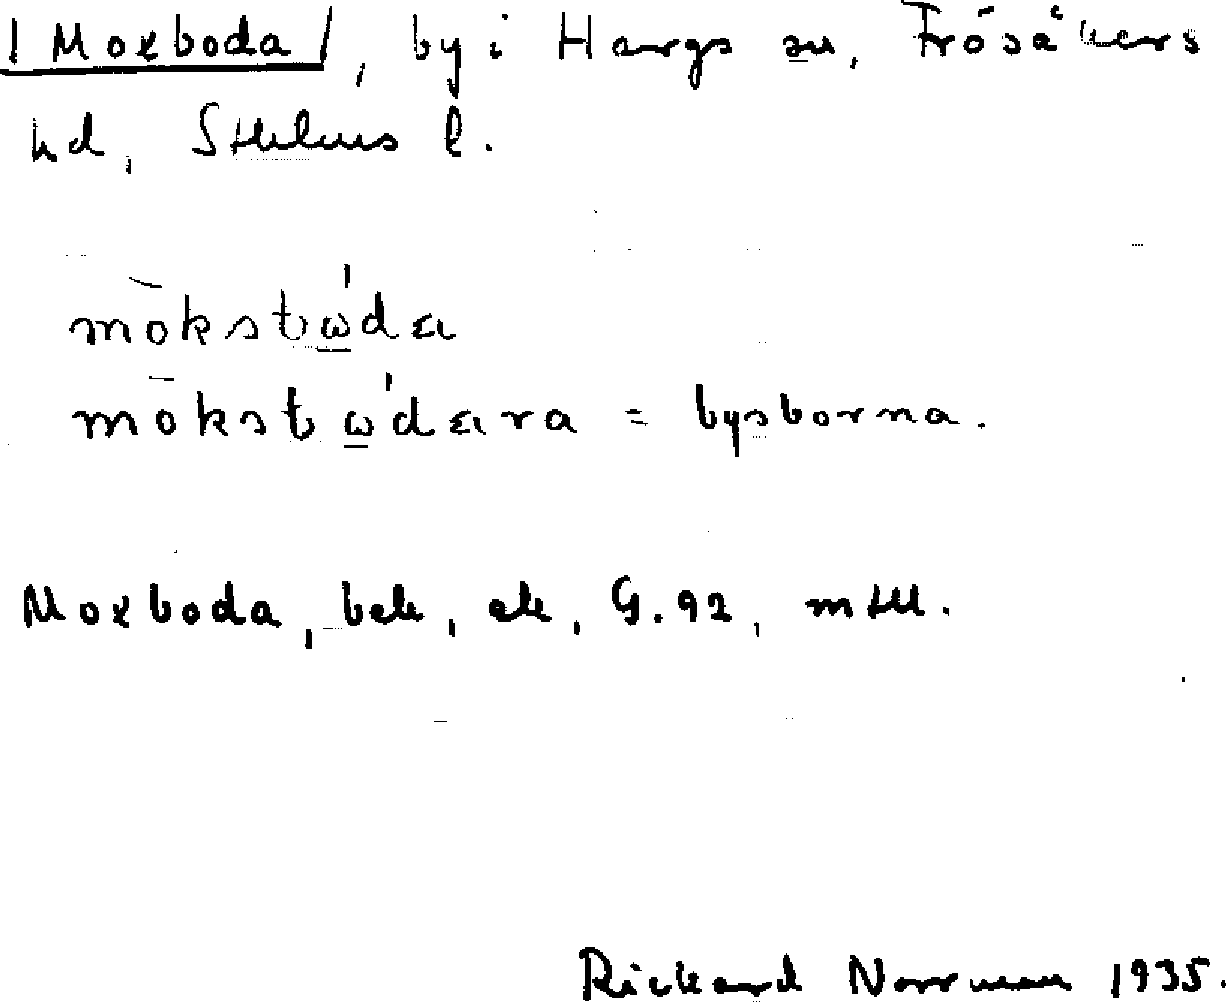 | Moxboda |, by i Hargs sn, Frösåkers
hd, Sthlms l.
mōkstω̲'da
mōkstω̲'dara = bysborna.
Moxboda, bek, ek, G.92, mtll.
Rickard Norrman 1935.